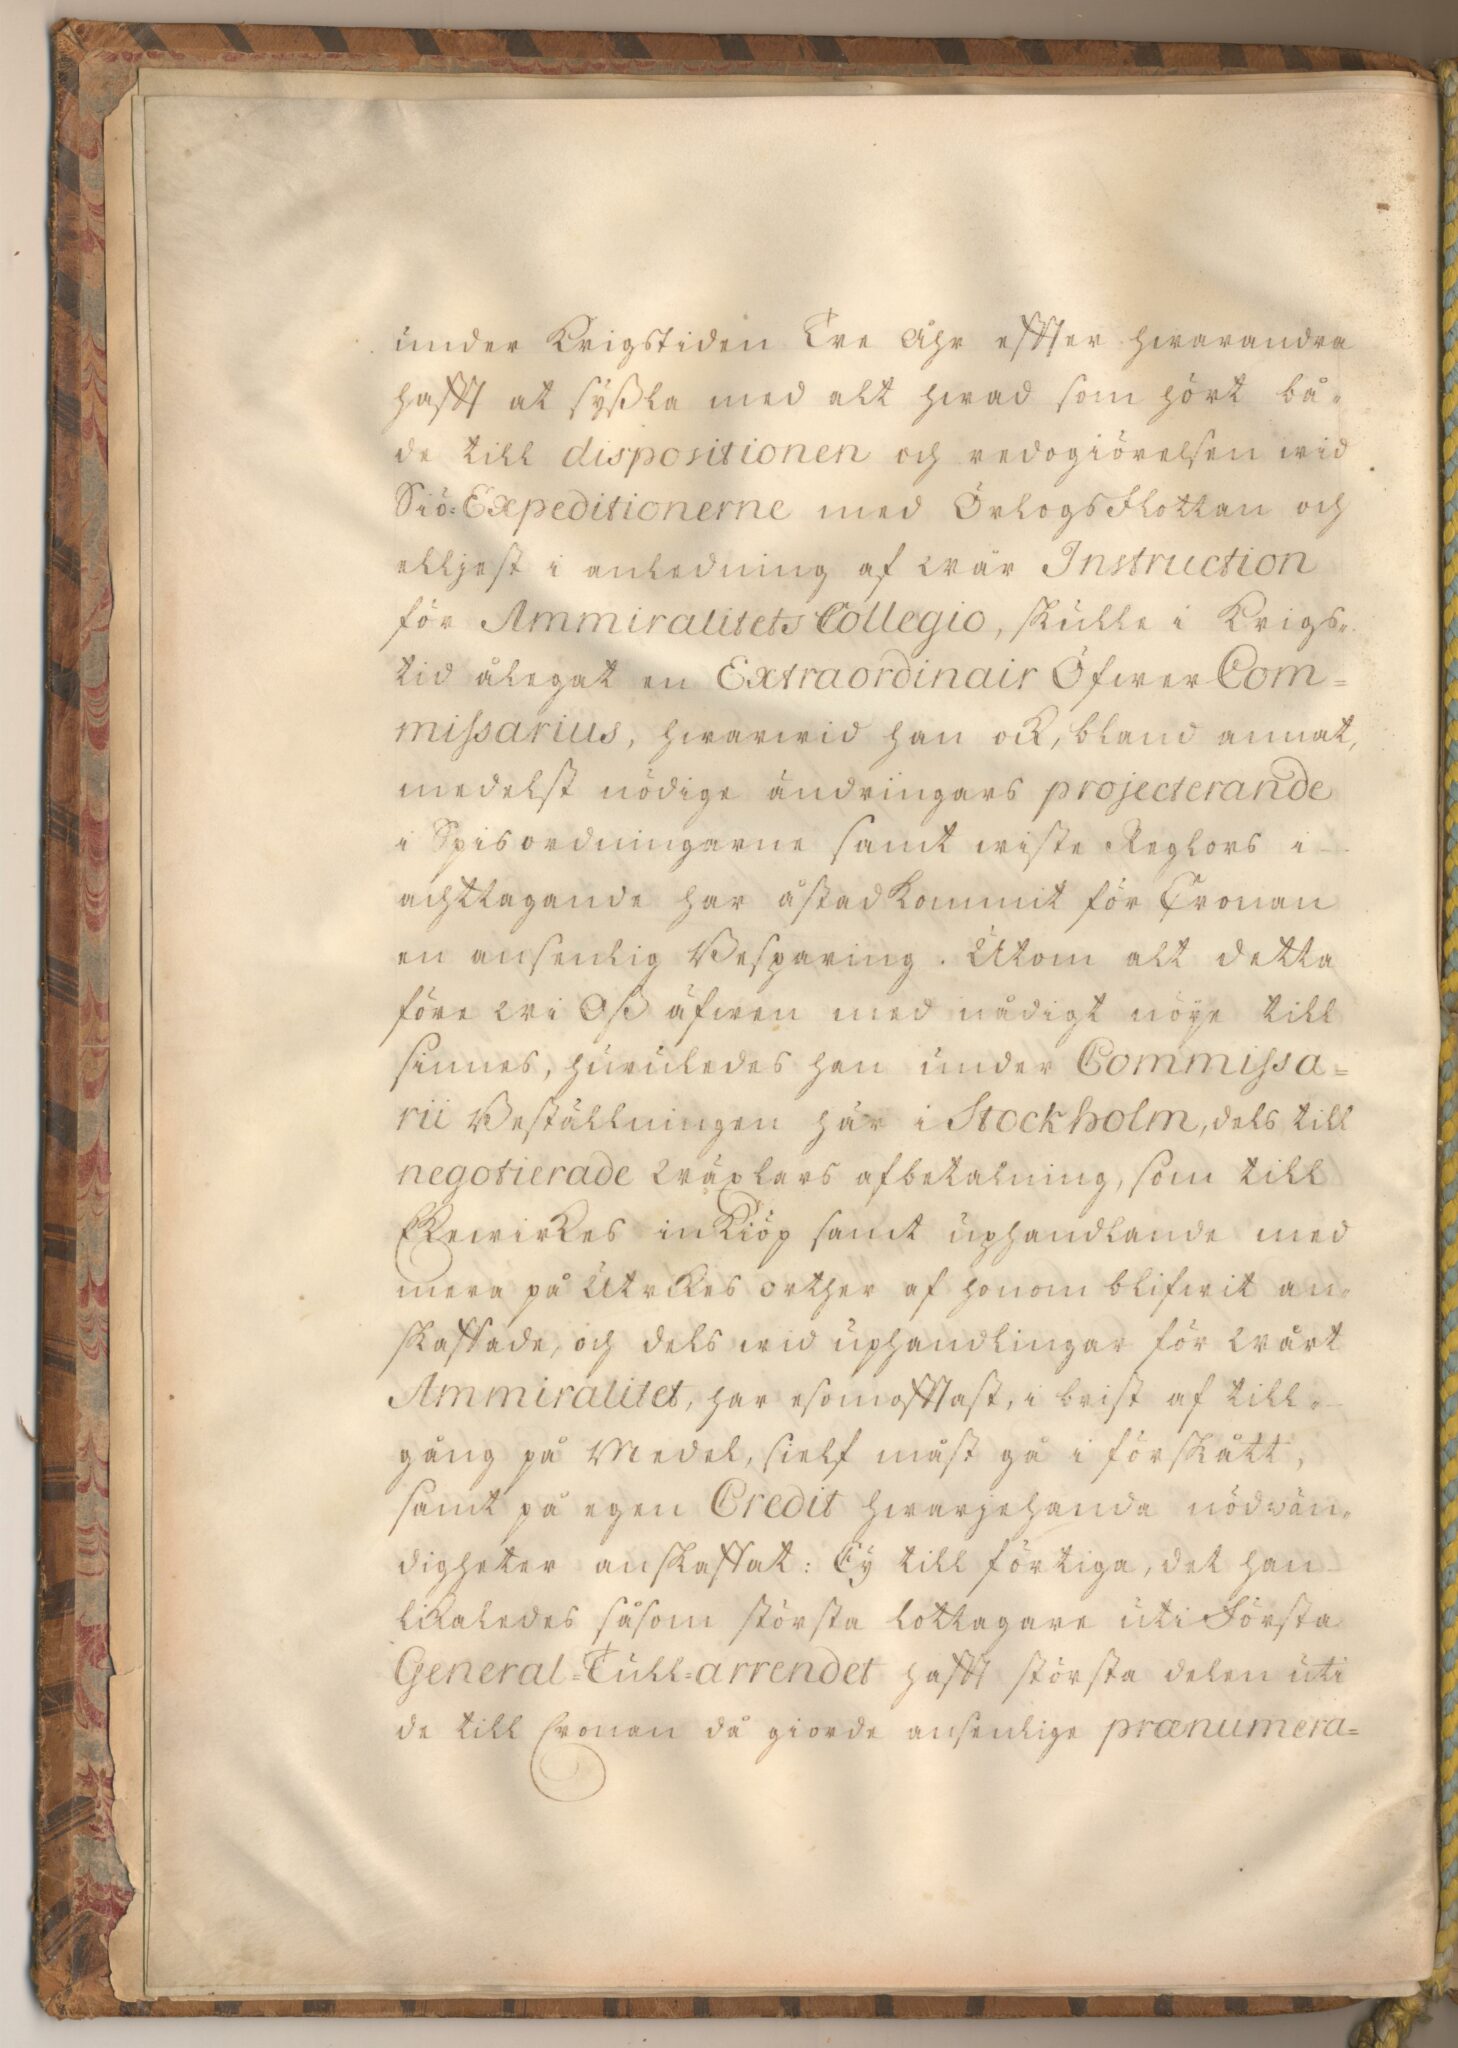 under Krigstiden Tre Åhr effter hwarandra
hafft at syßla med alt hwad som hört bå-
de till dispositionen och redogiörelsen wid
Siö-Expeditionerne med Örlogsflottan och
elljest i anledning af Wår Instruction
för Ammiralitets Collegio, skulle i Krigs-
tid ålegat en Extraordinair Öfwer Com=
missarius, hwarwid han ock, bland annat,
medelst nödige ändringars projecterande
i Spisordningarne samt wiste Reglors i-
achttagande har åstadkommit för Cronan
en ansenlig Besparing. Utom alt detta
före Wi Oß äfwen med nådigt nöye till
sinnes, huruledes han under Commissa=
rii Beställningen här i Stockholm, dels till
negotierade Wäxlars afbetalning, som till
Ekewirkes inkiöp samt uphandlande med
mera på Utrikes orther af honom blifwit an-
skaffade, och dels wid uphandlingar för Wårt
Ammiralitet, har esomofftast, i brist af till-
gång på Medel, sielf måst gå i förskått,
samt på egen Credit hwarjehanda nödwän-
digheter anskaffat: Ey till förtiga, det han
likaledes såsom största lottagare uti Första
General=Tull=arrendet hafft största delen uti
de till Cronan då giorde ansenlige prænumera=